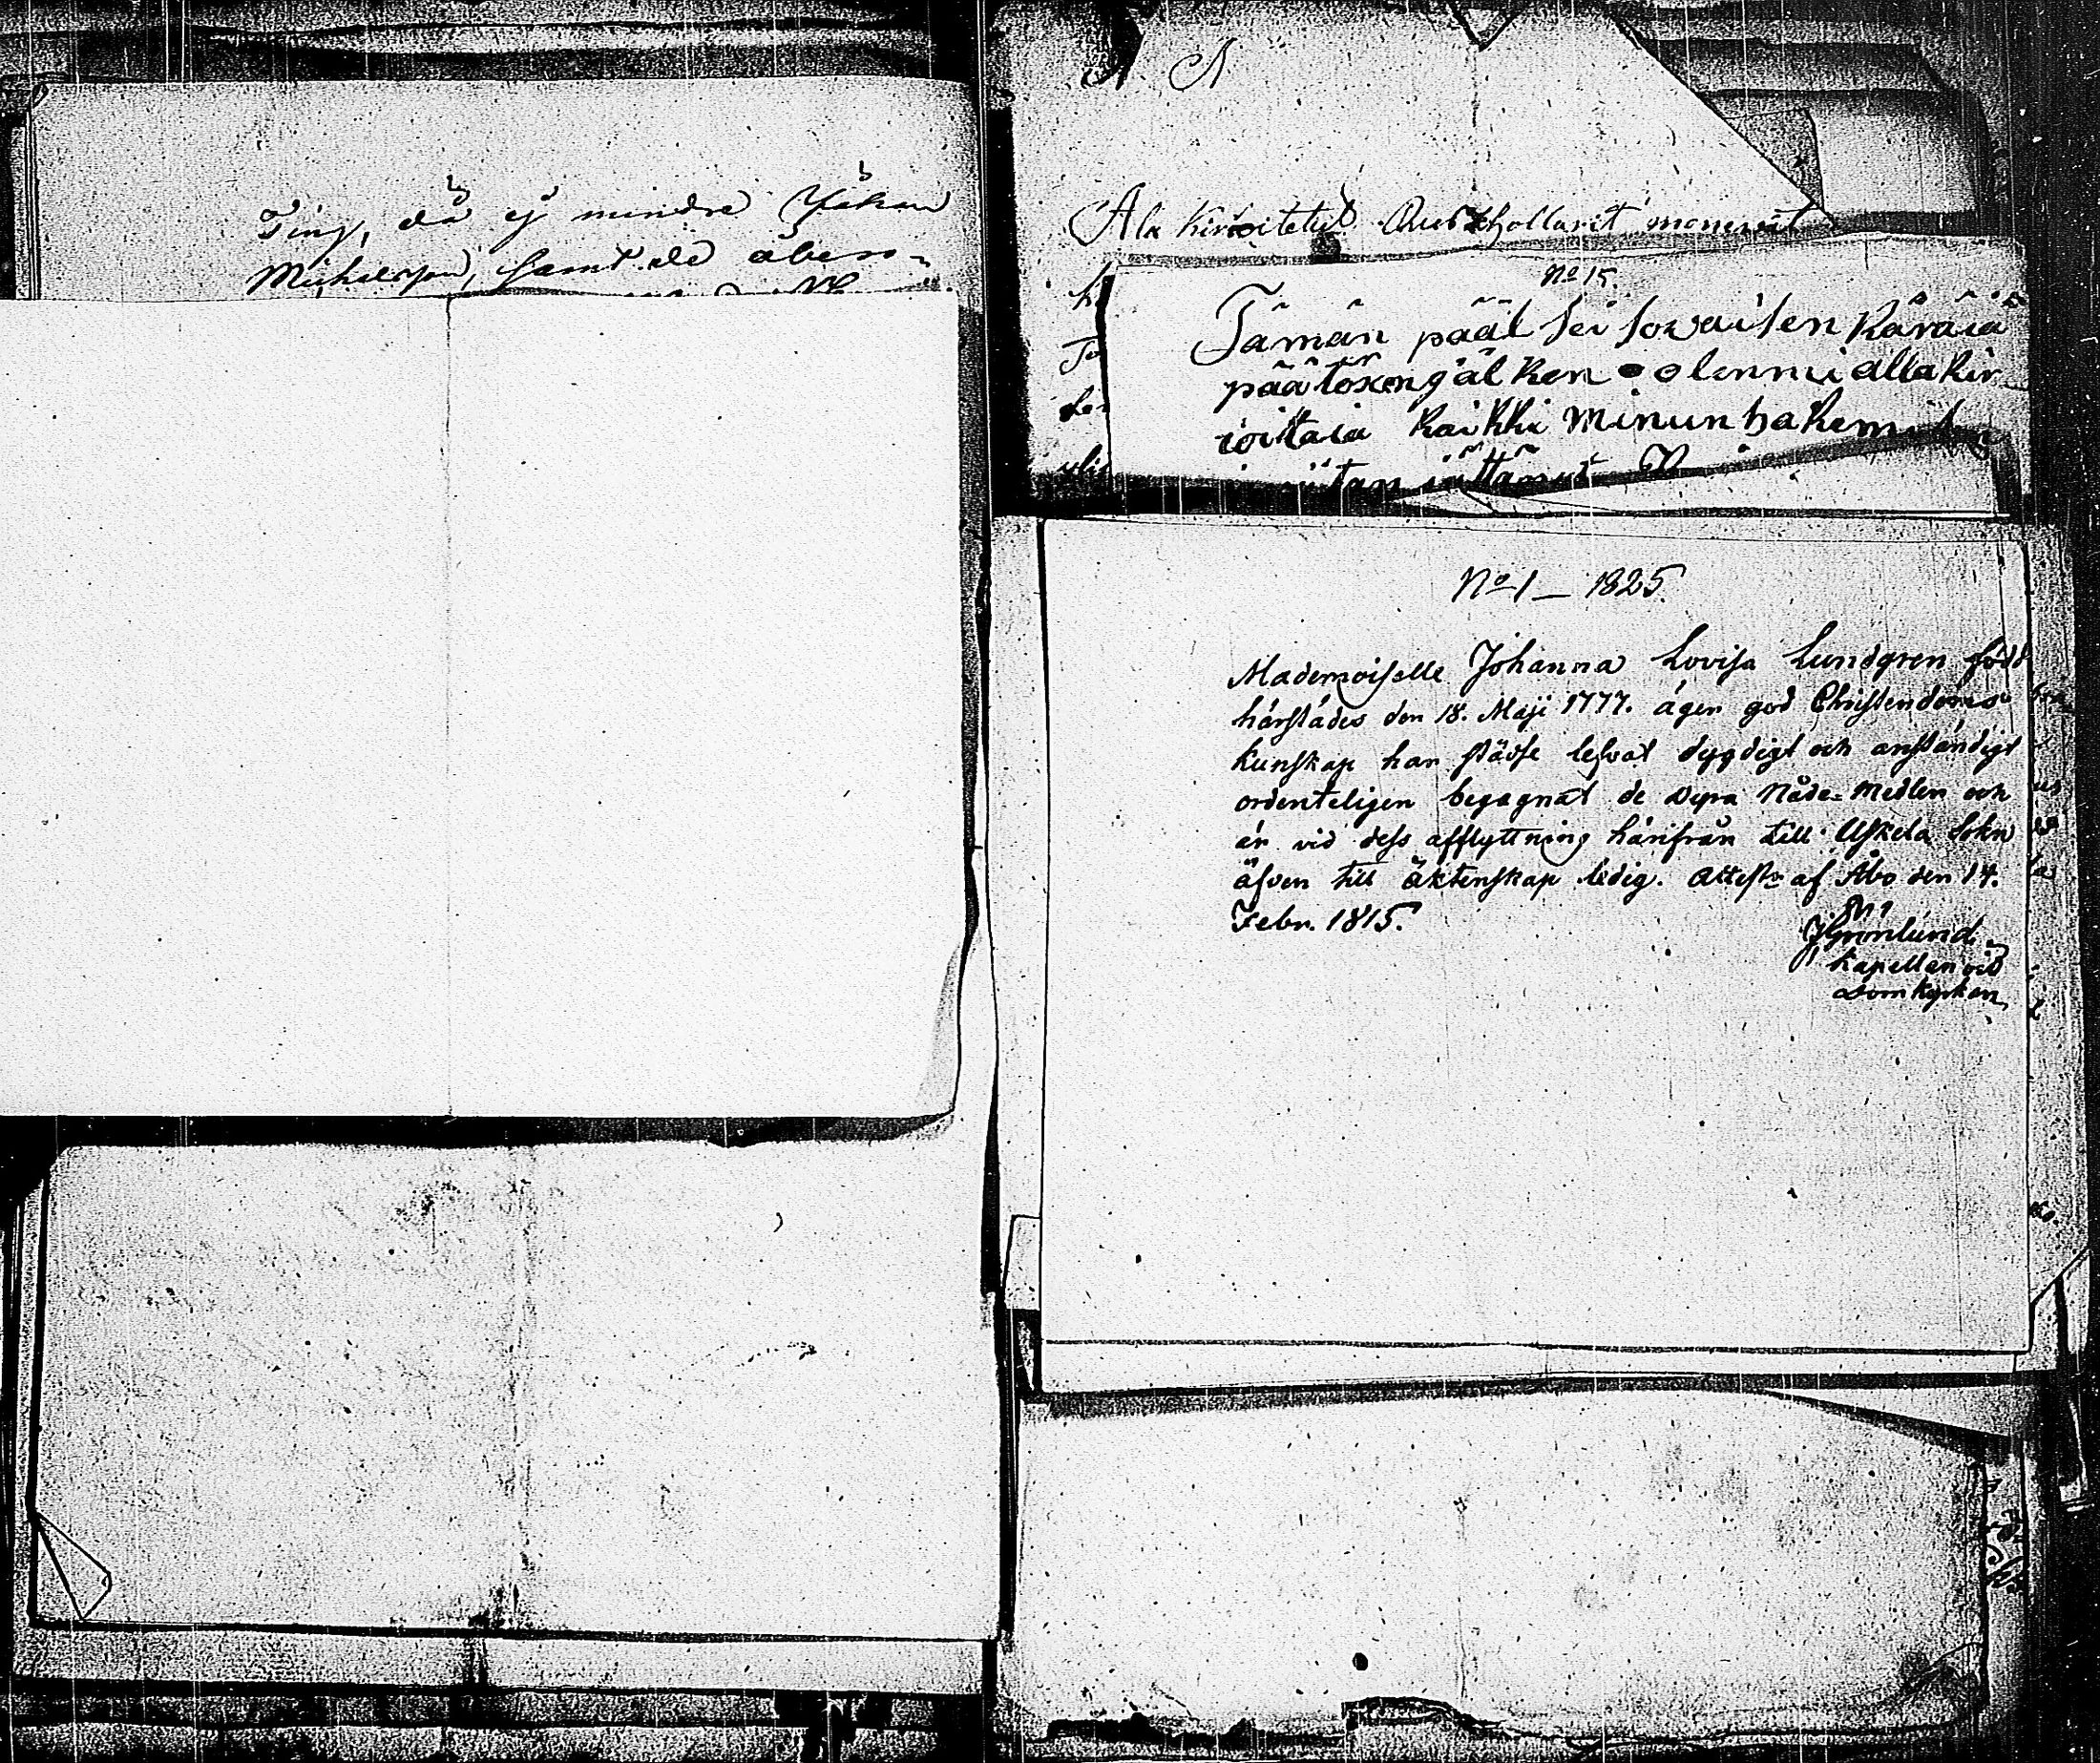 Ting, då ej mindre
samt de åbero-
Ala kirioitetut Rusthollarit
No 15.
Tämän pääl sei sovaisen Käräiä
päätöxen jälken olen mi alla kir
ioittaia kaikki minun hakemi
No 1 _ 1825.
Mademoiselle Johanna Lovisa Lundgren född
härstädes den 18. Maji 1777. äger god Christendoms
kunskap har städse lefvat dygdigt och anständigt
ordenteligen begagnat de dyra Nåde-Medlen och
är vid dess afflyttning härifrån till Uskela Sokn
äfven till äktenskap ledig. Attest. af Åbo den 14.
Febr. 1815.
J Grönlund
Kapellan vid
Domkyrkan